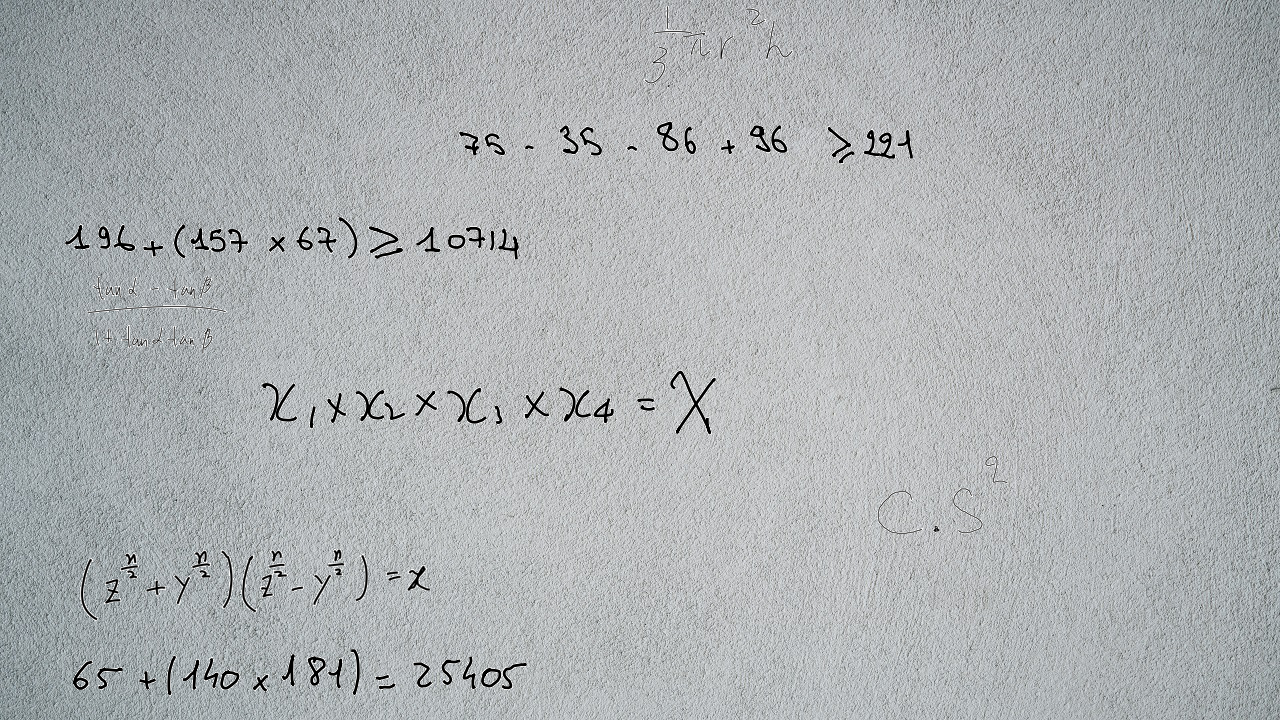 1/3 πr²h
75 - 35 - 86 + 96 ≥ 221
196 + (157 × 67) ≥ 10714
(tan α - tan β) / (1 + tan α tan β)
x₁ × x₂ × x₃ × x₄ = X
C.S²
(z^(n/2) + y^(n/2))(z^(n/2) - y^(n/2)) = x
65 + (140 × 181) = 25405